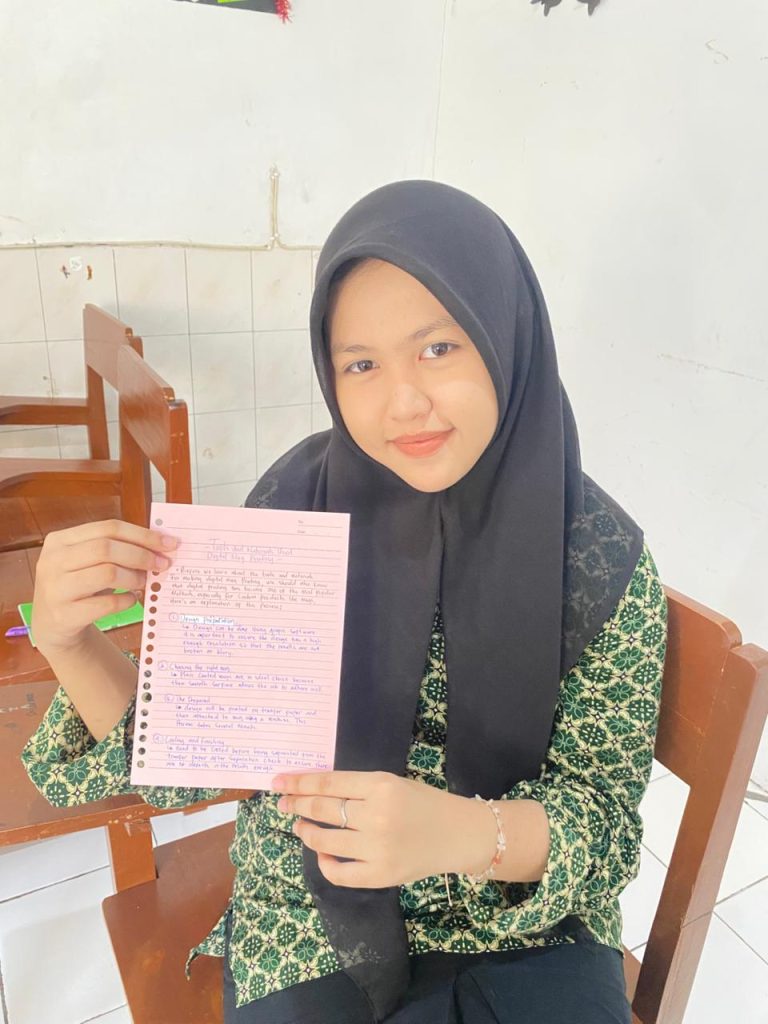 No:
Date:
Tools and Materials Used
Digital Mug Printing
• Before we learn about the tools and materials
for making digital mug Printing, we should also know
that digital printing has become one of the most Popular
Methods, especially for Custom Products like mugs,
Here's an explanation of the Process
① Design Preparation
↳ Design can be done using graphic Software
it is important to ensure the design has a high
enough resolution so that the results are not
broken or blurry.
2. Choosing the right mug
↳ Plain Coated mugs are an ideal Choice because
their Smooth Surface allows the ink to adhere well
③ the
↳ design will be printed on transfer paper and
then attached to mug using a machine. This
Process takes Several minutes.
④ Cooling and finishing
↳ need to be Cooled before being separated from the
transfer paper After Separation check to ensure there
are no defects in the results